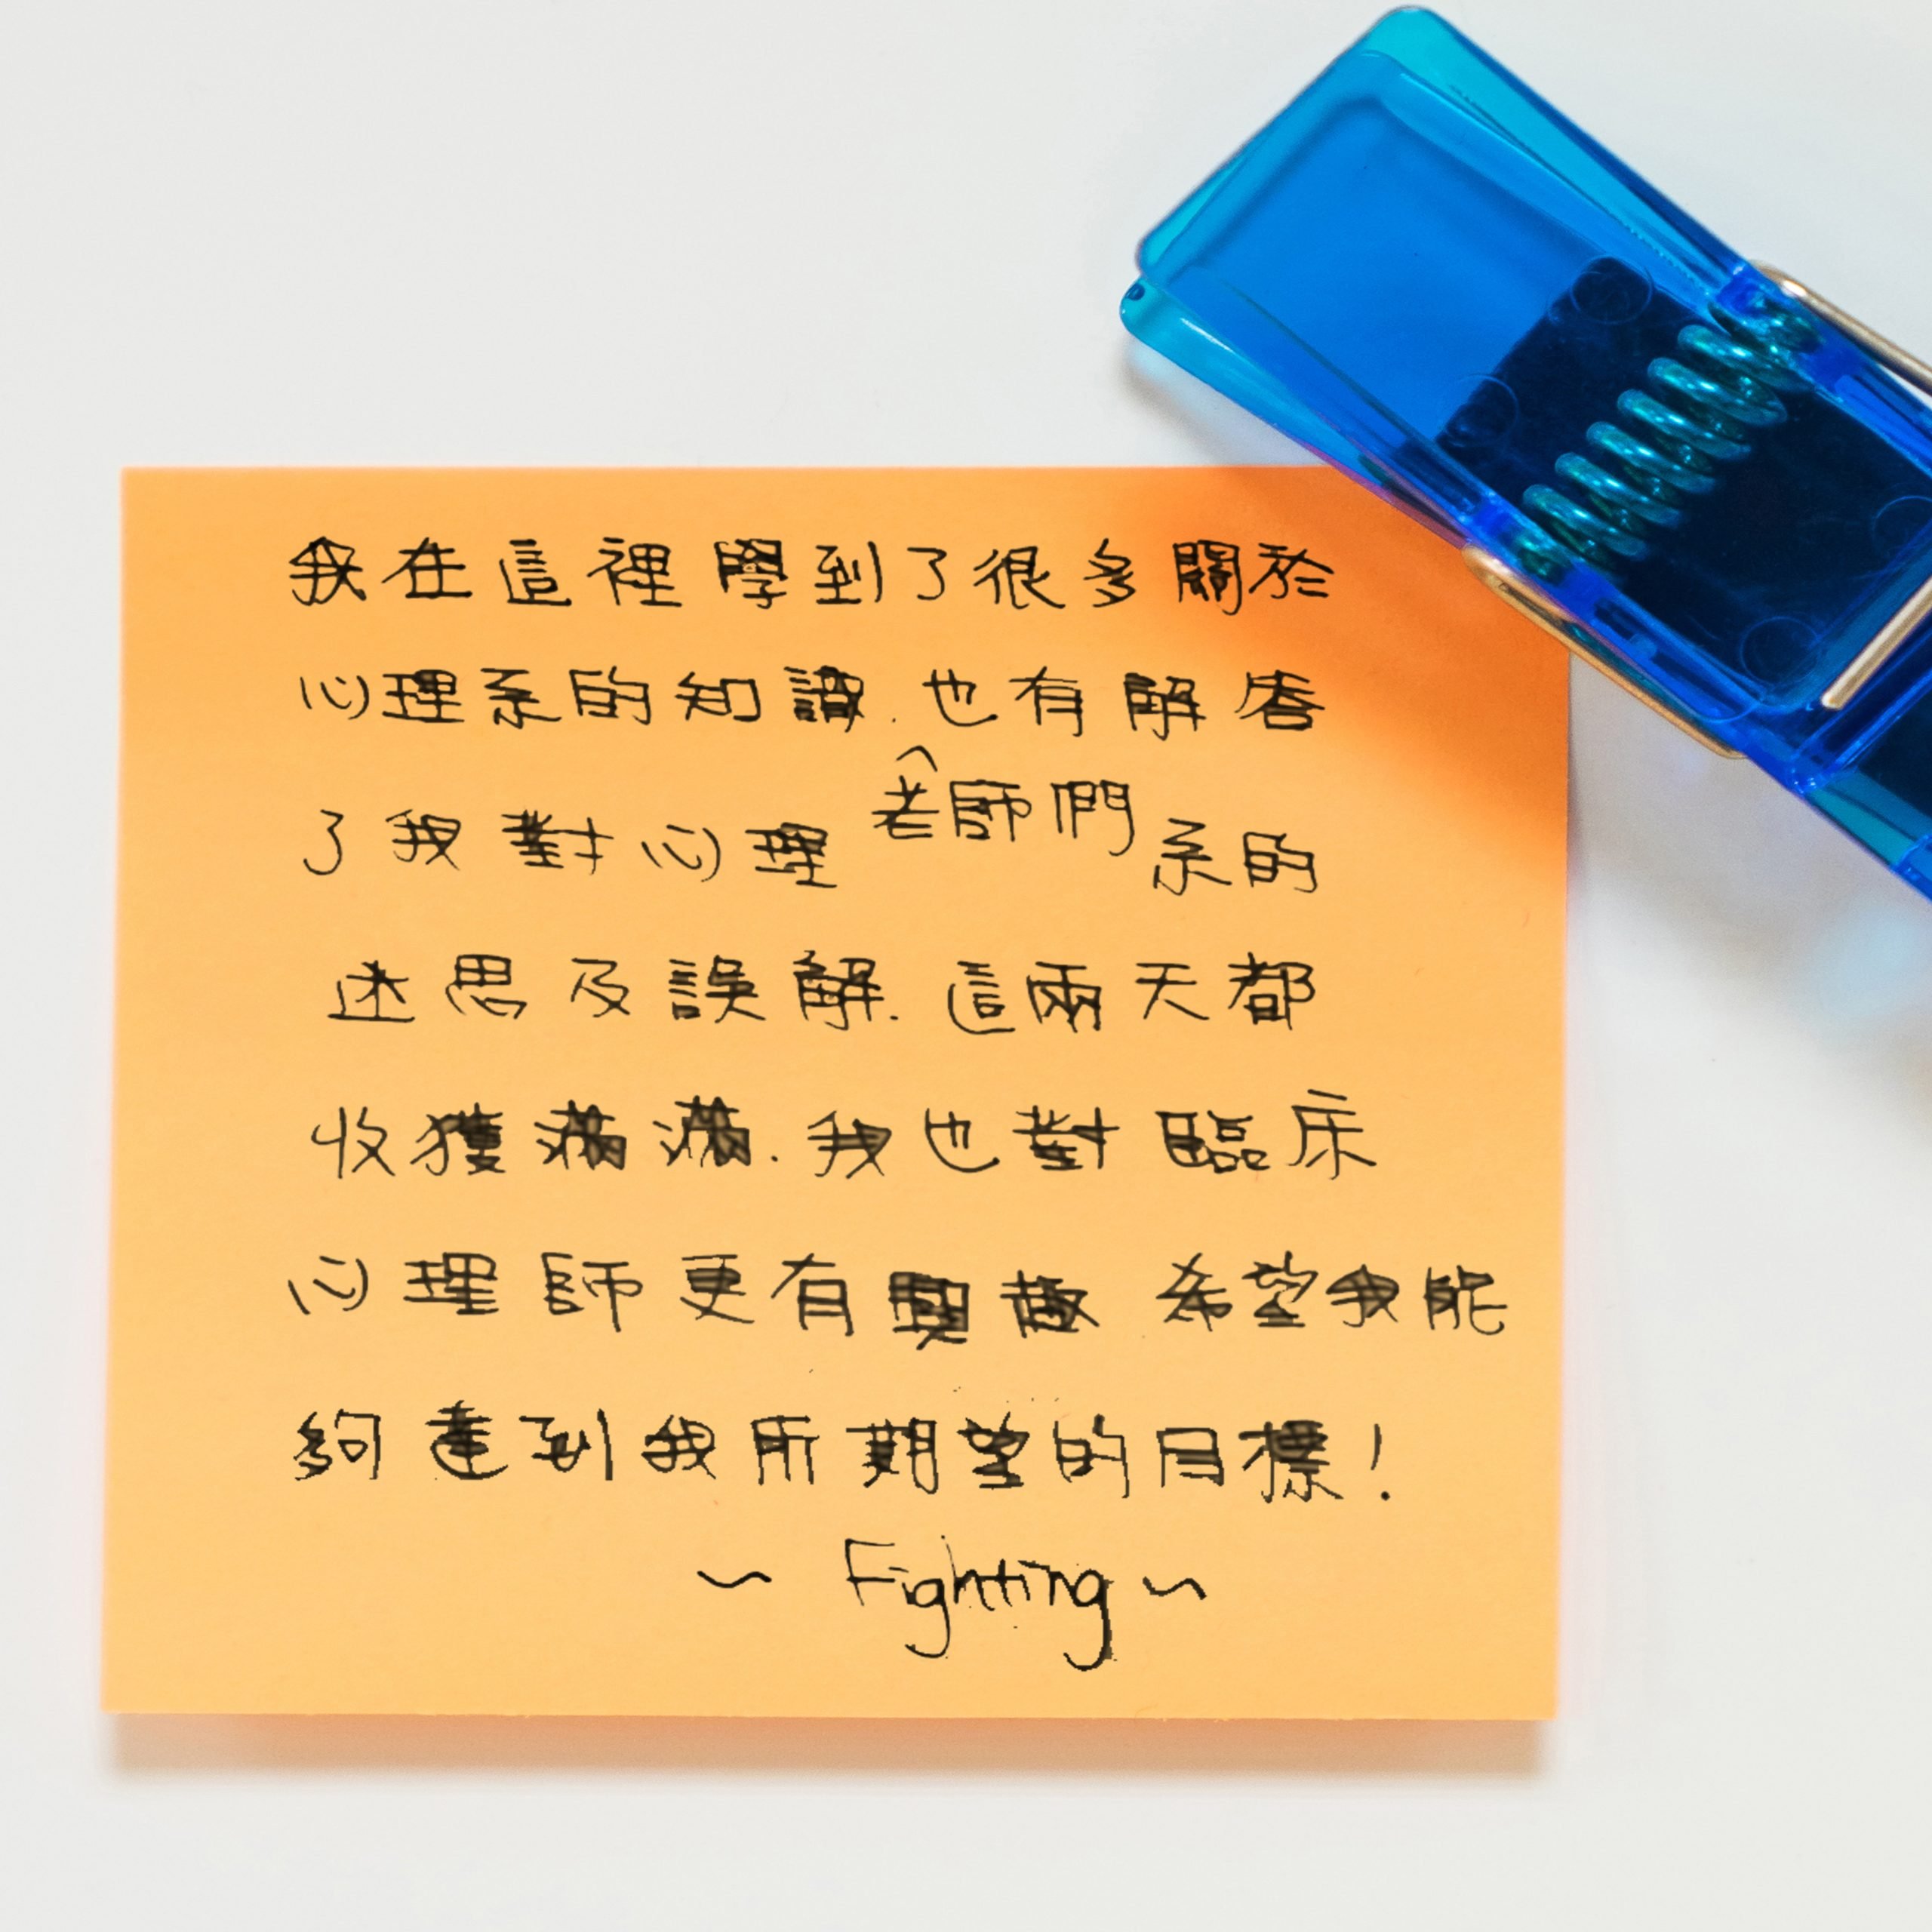 我在這裡學到了很多關於
心理系的知識.也有解答
了我對心理老師們系的
迷思及誤解.這兩天都
收獲滿滿.我也對臨床
心理師更有興趣 希望我能
夠達到我所期望的目標!
~ Fighting ~